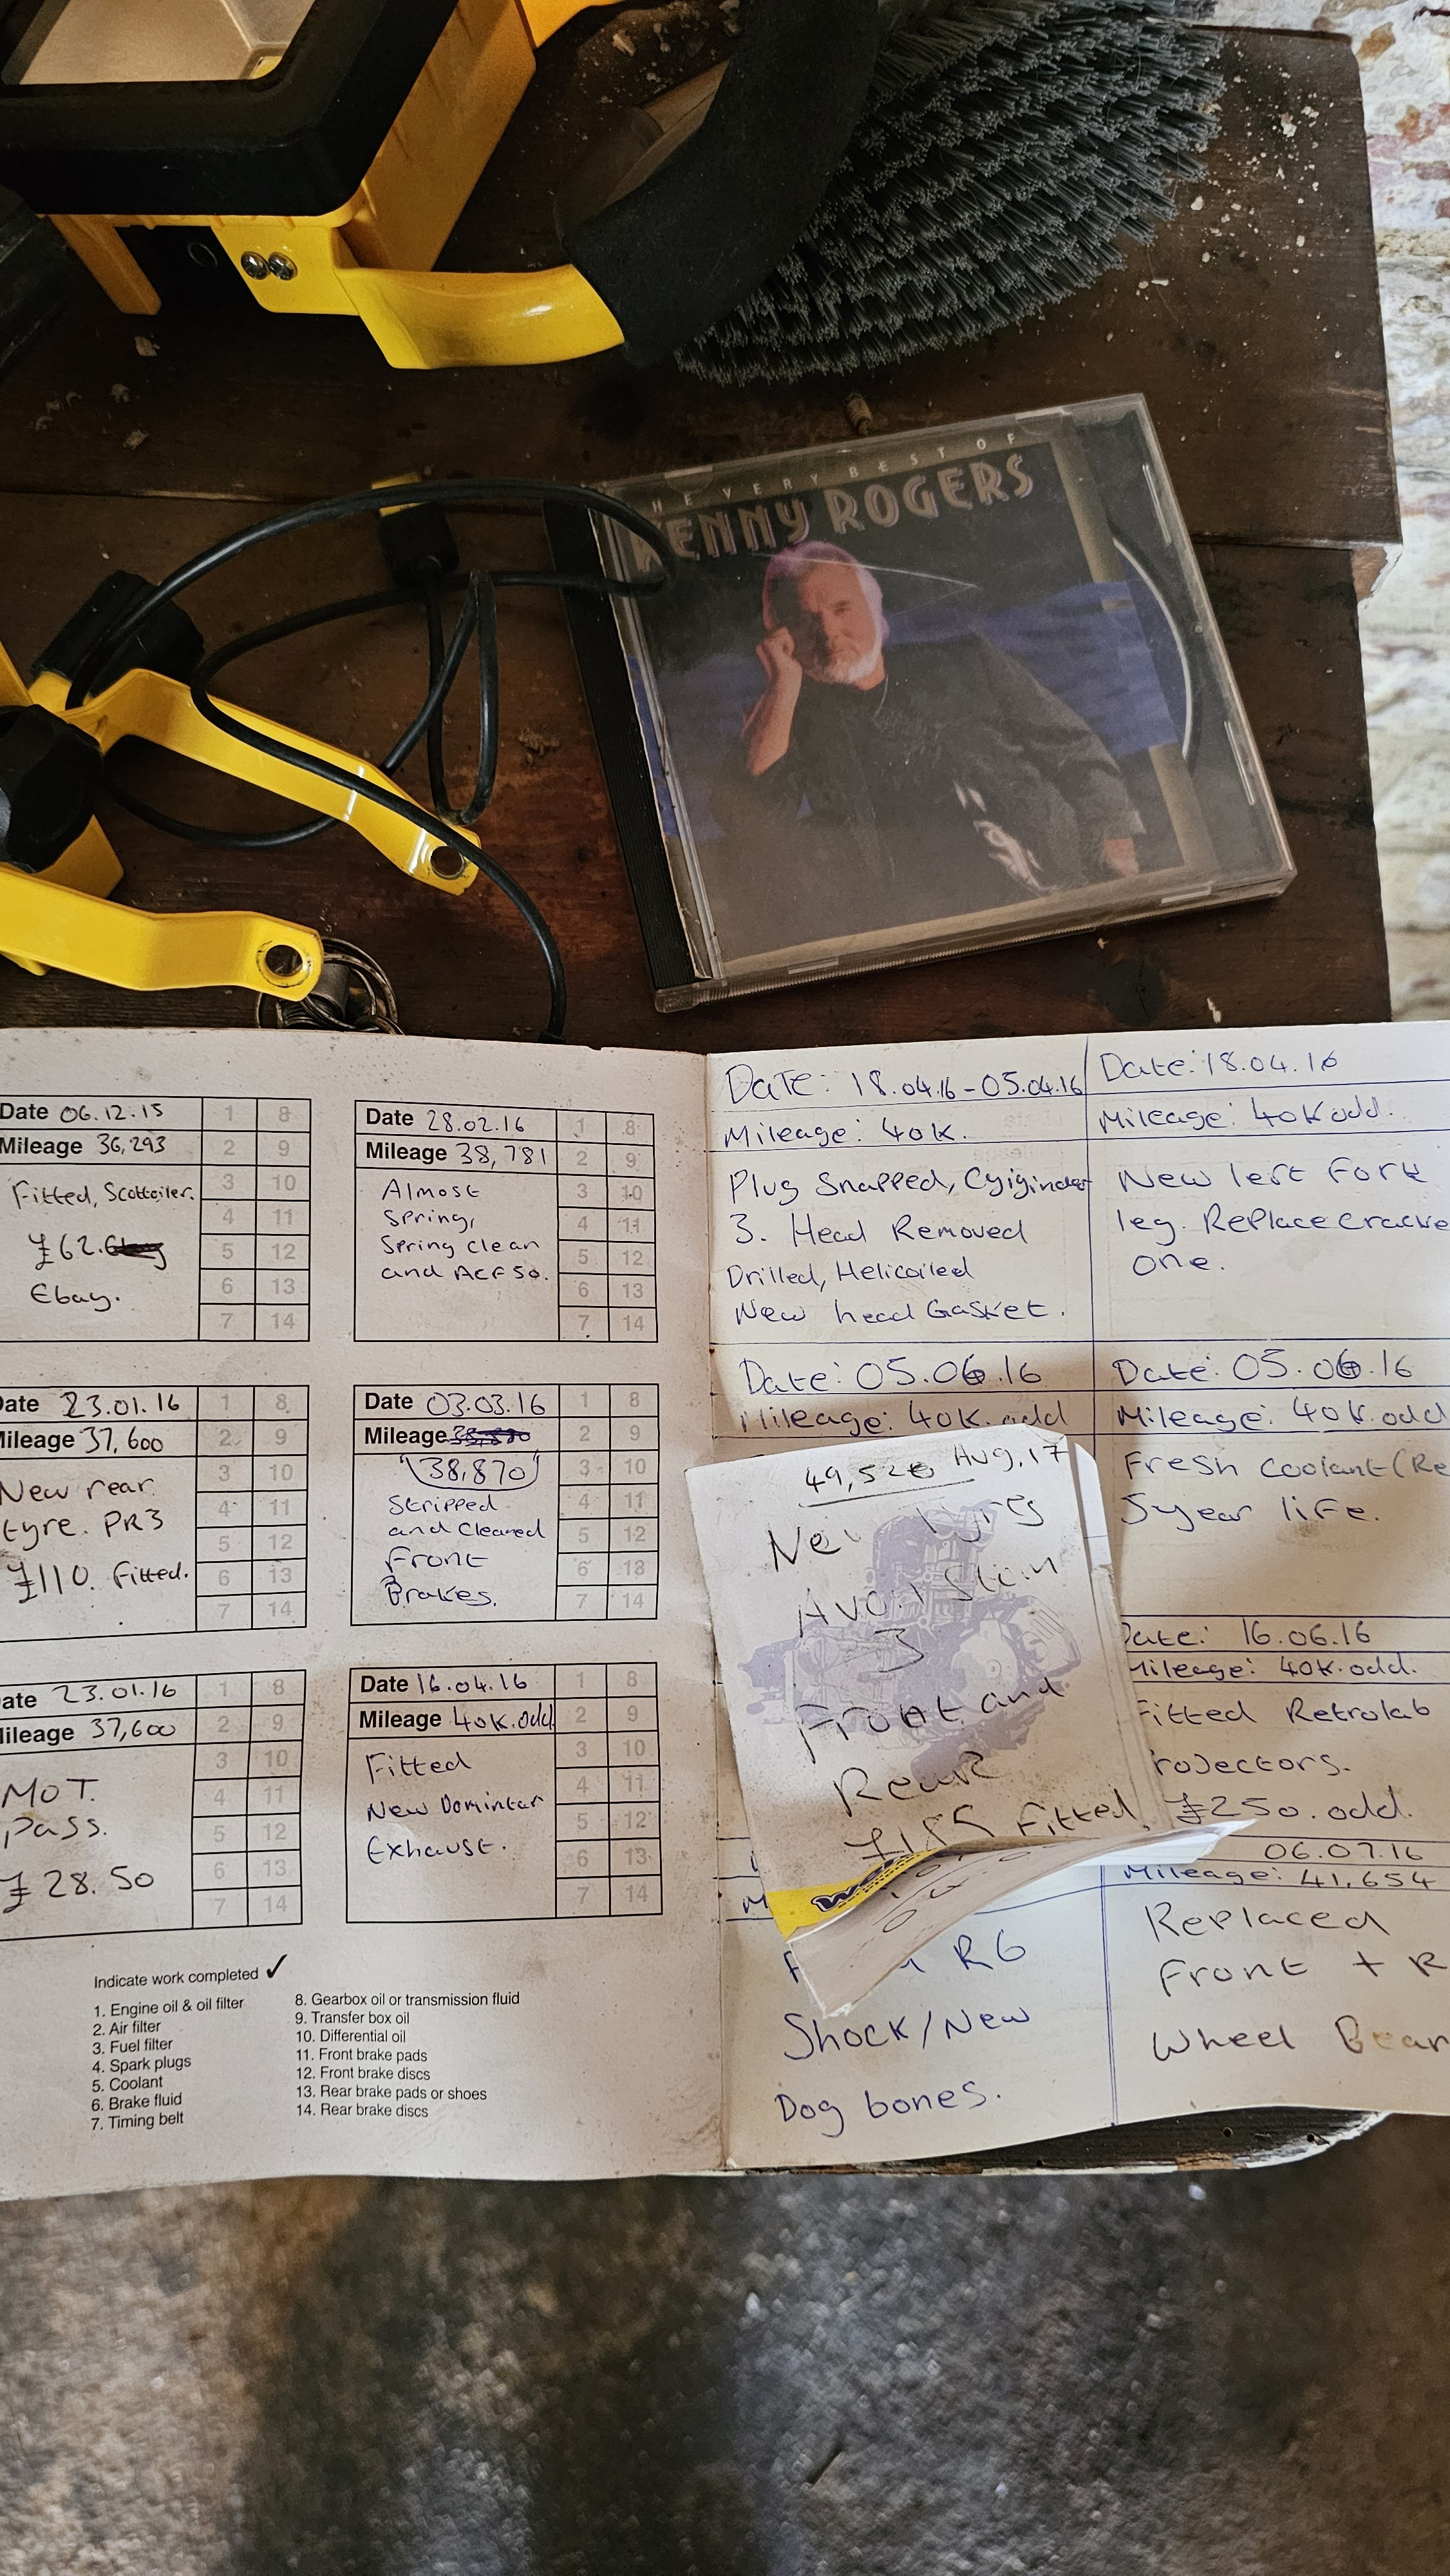 THE VERY BEST OF
KENNY ROGERS
Date 06.12.15
Mileage 36,293
Fitted, Scottoiler.
£62.
Ebay.
1 8
2 9
3 10
4 11
5 12
6 13
7 14
Date 28.02.16
Mileage 38,781
Almost
Spring,
Spring clean
and ACF50.
1 8
2 9
3 10
4 11
5 12
6 13
7 14
Date 23.01.16
Mileage 37,600
New rear
tyre. PR3
£110. Fitted.
1 8
2 9
3 10
4 11
5 12
6 13
7 14
Date 03.03.16
Mileage
(38,870)
Stripped
and Cleaned
Front
Brakes.
1 8
2 9
3 10
4 11
5 12
6 13
7 14
ate 23.01.16
Mileage 37,600
MOT.
Pass.
£28.50
1 8
2 9
3 10
4 11
5 12
6 13
7 14
Date 16.04.16
Mileage 40K.odd
Fitted
New Domintar
Exhaust.
1 8
2 9
3 10
4 11
5 12
6 13
7 14
Indicate work completed ✓
1. Engine oil & oil filter
2. Air filter
3. Fuel filter
4. Spark plugs
5. Coolant
6. Brake fluid
7. Timing belt
8. Gearbox oil or transmission fluid
9. Transfer box oil
10. Differential oil
11. Front brake pads
12. Front brake discs
13. Rear brake pads or shoes
14. Rear brake discs
Date: 18.04.16-05.04.16
Mileage: 40K.
Plug Snapped, Cyiginder
3. Head Removed
Drilled, Helicoiled
New head Gasket.
Date: 18.04.16
Mileage: 40K odd.
New left Fork
leg. Replace cracke
one.
Date: 05.06.16
Mileage: 40K.odd
Date: 05.06.16
Mileage: 40K.odd
Fresh Coolant (Re
5year life.
49,526 Aug,17
New Tyres
Avon
3
Front and
Rear
Fitted
Date: 16.06.16
Mileage: 40K.odd.
Fitted Retrolab
rojectors.
£250.odd.
R6
Shock/New
Dog bones.
06.07.16
Mileage: 41,654
Replaced
Front + R
Wheel Bear